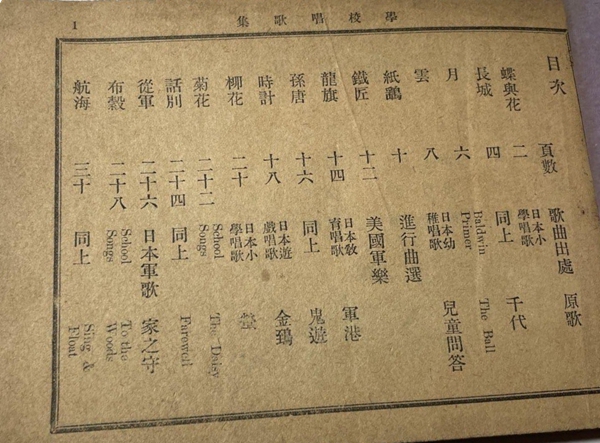 學校唱歌集
1
目次 頁數 歌曲出處 原歌
蝶與花 二 日本小學唱歌
長城 四 同上 千代
月 六 Baldwin Primer The Ball
雲 八 日本幼稚唱歌 兒童問答
紙鷂 十 進行曲選
鐵匠 十二 美國軍樂
龍旗 十四 日本教育唱歌 軍港
孫唐 十六 同上 鬼遊
時計 十八 日本遊戲唱歌 金鵄
柳花 二十 日本小學唱歌 螢
菊花 二十二 School Songs The Daisy
話別 二十四 同上 Farewell
從軍 二十六 日本軍歌 家之守
布穀 二十八 School Songs To the Woods
航海 三十 同上 Sing & Float